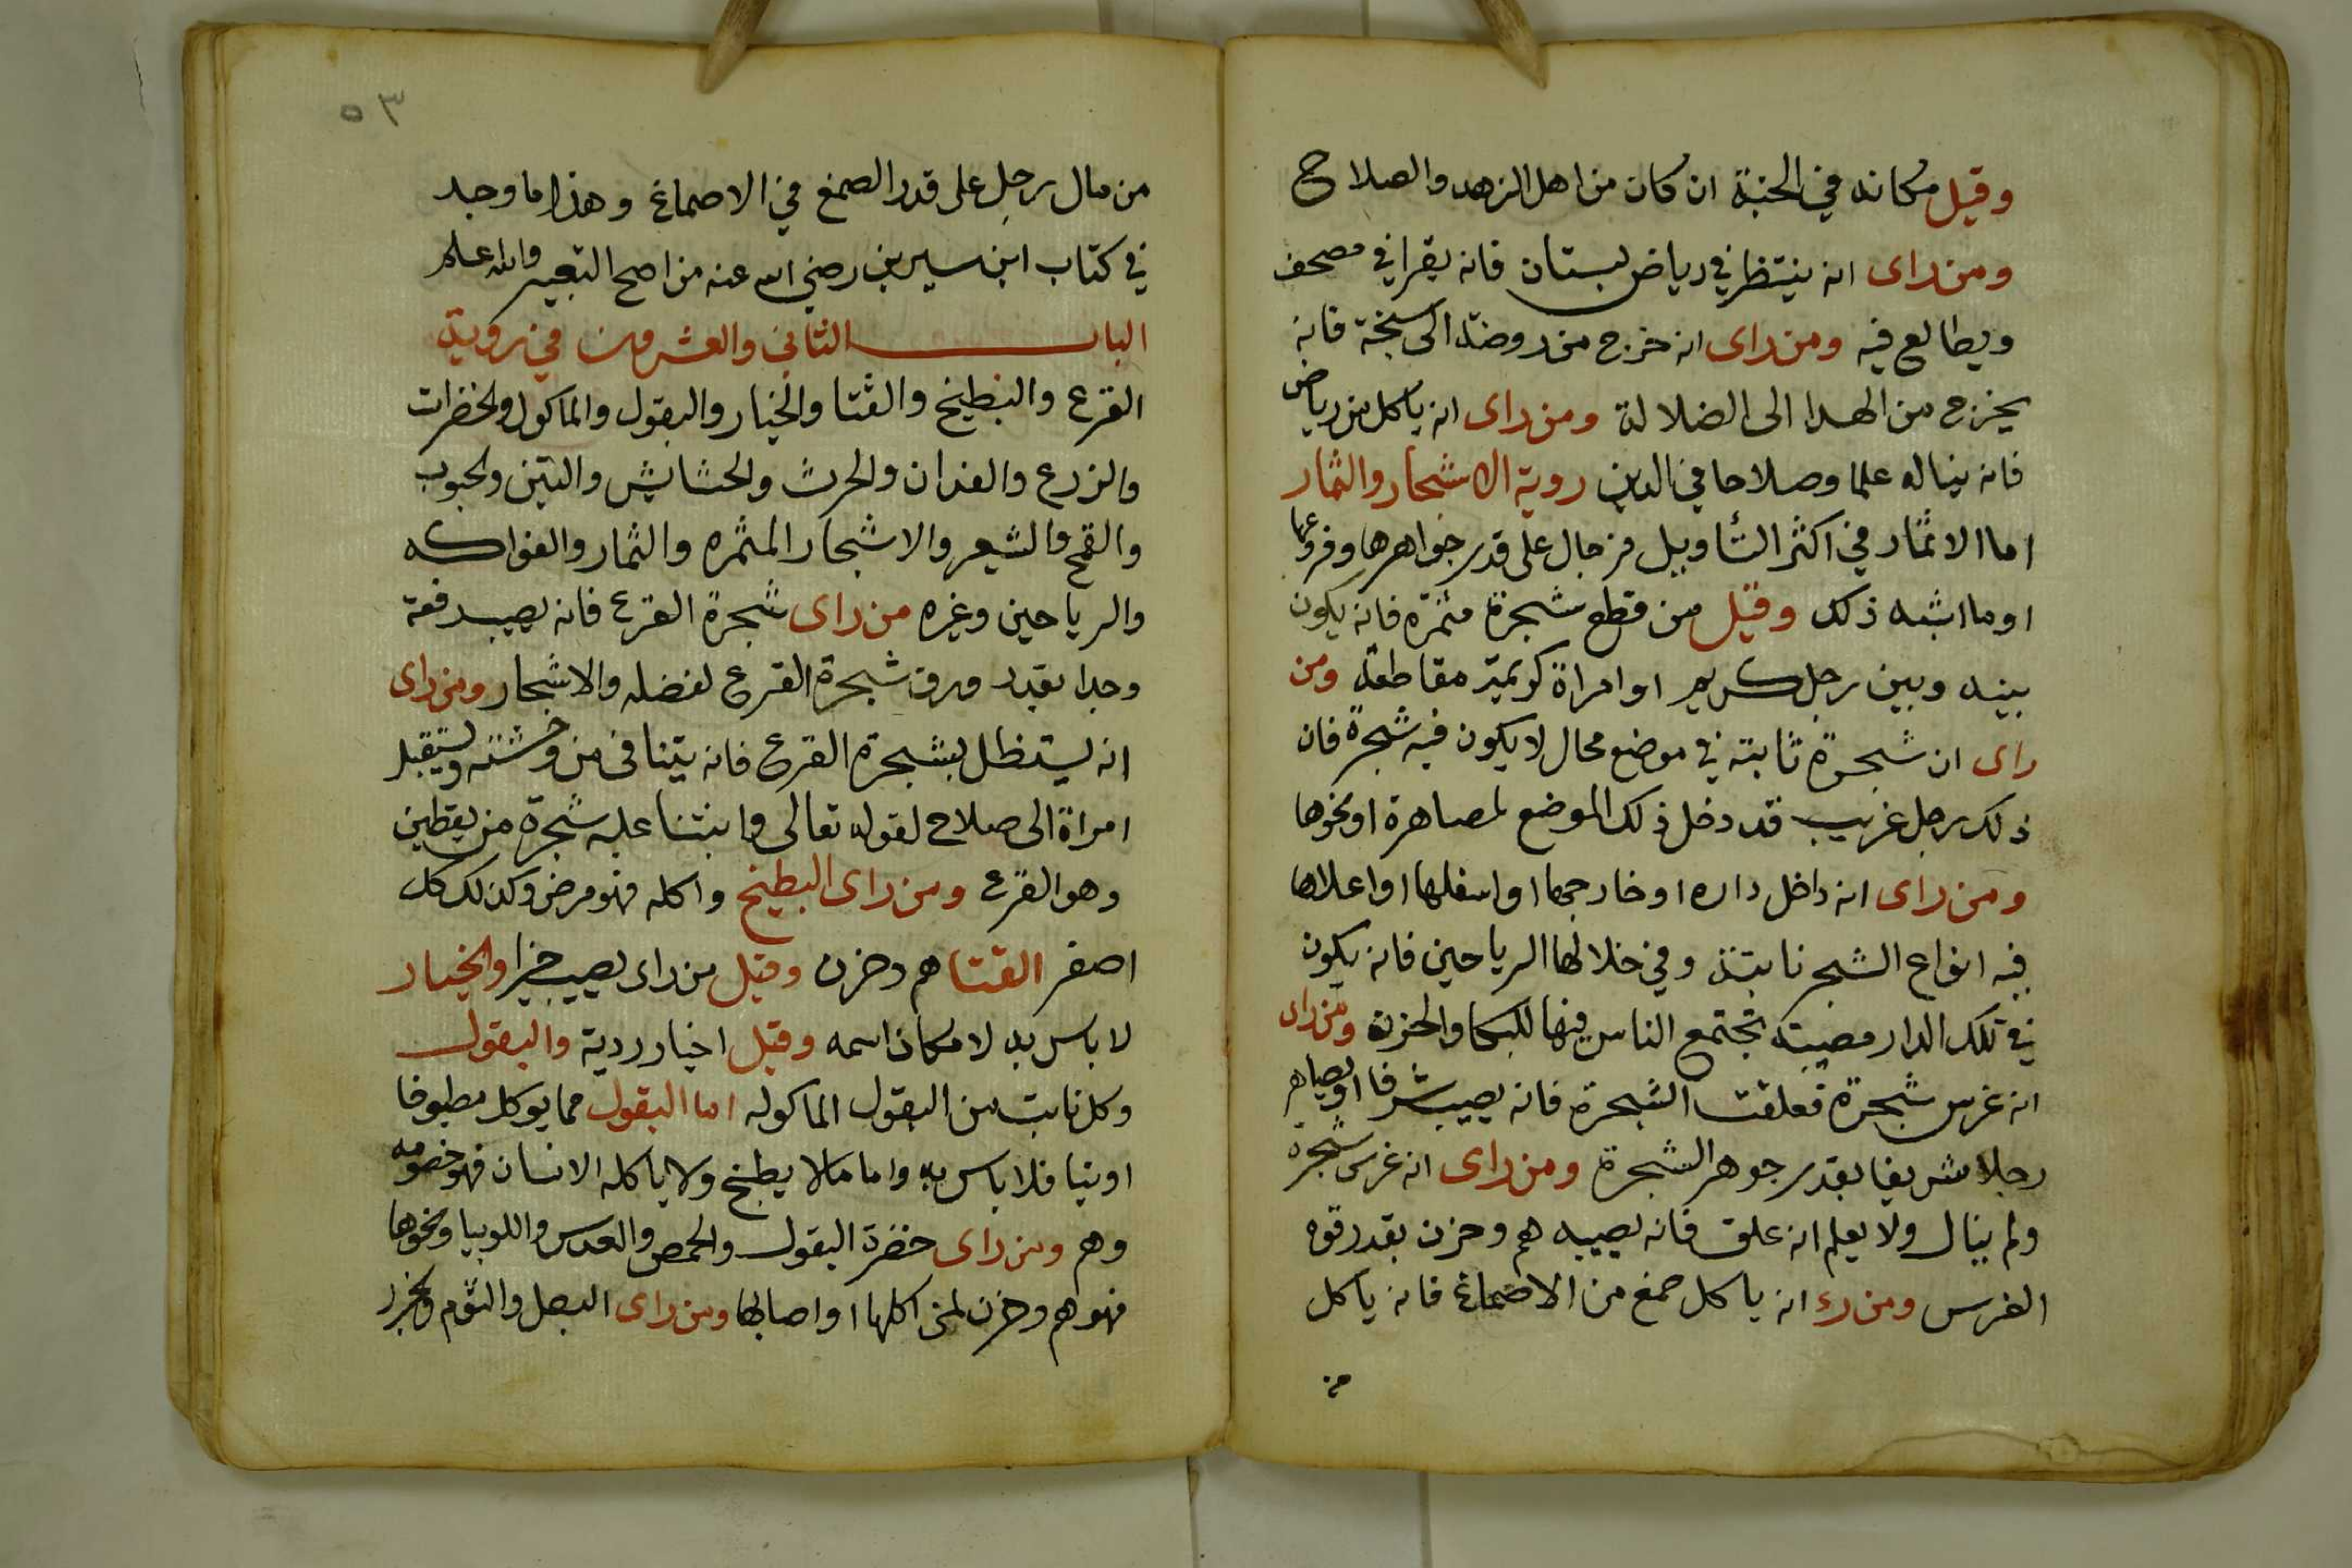 وقيل مكانه في الجنة ان كان من اهل الزهد والصلاح
ومن راى انه ينتظر في رياض بستان فانه يقرا في مصحف
ويطالع فيه ومن راى انه خرج من روضة الى سبخة فانه
يخرج من الهدا الى الضلالة ومن راى انه ياكل من رياض
فانه يناله علما وصلاحا في الدين روية الاشجار والثمار
اما الاثمار في اكثر التأويل فرجال على قدر جواهرها وفروعها
اوما اشبه ذلك وقيل من قطع شجرة مثمرة فانه يكون
بينه وبين رجل كريم او امراة كريمة مقاطعة ومن
راى ان شجرة ثابتة في موضع محال لا يكون فيه شجرة فان
ذلك رجل غريب قد دخل ذلك الموضع لمصاهرة او نحوها
ومن راى انه داخل داره او خارجها او اسفلها او اعلاها
فيه انواع الشجر نابتة وفي خلالها الرياحين فانه يكون
في تلك الدار مصيبة تجتمع الناس فيها للبكا والحزن ومن راى
انه غرس شجرة فعلقت الشجرة فانه يصيب شرفا او يصاهر
رجلا شريفا بقدر جوهر الشجرة ومن راى انه غرس شجرة
ولم ينال ولا يعلم انه علق فانه يصيبه هم وحزن بقدر قوه
الغرس ومن رء انه ياكل صمغ من الاصماغ فانه ياكل
من
٥٣
من مال رجل على قدر الصمغ في الاصماغ وهذا ما وجد
في كتاب ابن سيرين رضي الله عنه من اصح التعبير والله اعلم
الباب الثاني والعشرون في روية
القرع والبطيخ والقثا والخيار والبقول والماكول والخضرات
والزرع والفدان والحرث والحشايش والتين والحبوب
والقمح والشعير والاشجار المثمره والثمار والفواكه
والرياحين وغيره من راى شجرة القرع فانه يصيب رفعة
وجدا بقدر ورق شجرة القرع لفضله والاشجار ومن راى
انه يستظل بشجرة القرع فانه يتنافى من وحشته ويستقبل
امراة الى صلاح لقوله تعالى وانبتنا عليه شجرة من يقطين
وهو القرع ومن راى البطيخ واكله فهو مرض وكذلك كل
اصفر القثا هم وحزن وقيل من راى يصيب خيرا والخيار
لا باس به لا مكان اسمه وقيل اخيار ردية والبقول
وكل نابت من البقول الماكوله اما البقول مما يوكل مطبوخا
او نيا فلا باس به واما ما لا يطبخ ولا ياكله الانسان فهو خصومه
وهم ومن راى خضرة البقول والحمص والعدس واللوبيا ونحوها
فهو هم وحزن لمن اكلها او اصابها ومن راى البصل والثوم والجزر